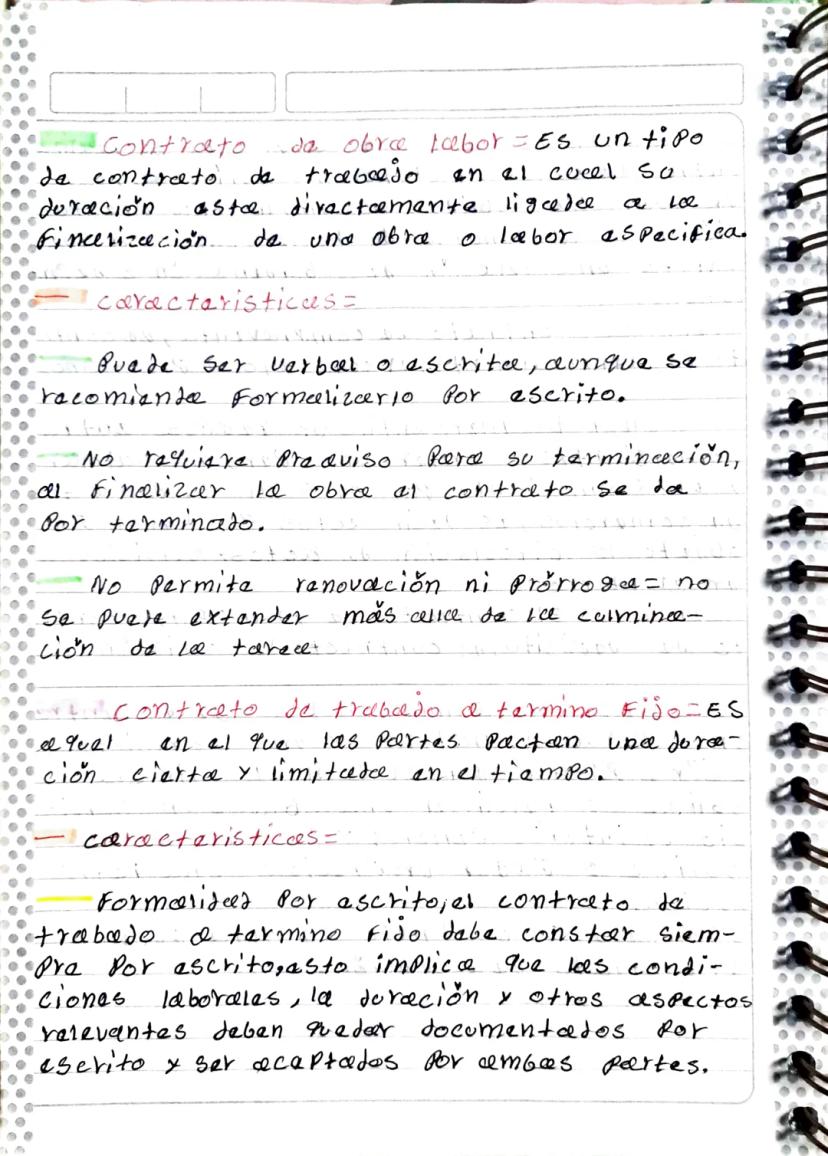 Contrato de obra labor = Es un tipo
de contrato de trabajo en el cual su
duración esta directamente ligada a la
finalización de una obra o labor especifica.
— caracteristicas =
Puede ser verbal o escrita, aunque se
recomienda formalizarlo por escrito.
No requiere preaviso para su terminación,
al finalizar la obra el contrato se da
por terminado.
No permite renovación ni prórroga = no
se puede extender más alla de la culmina-
ción de la tarea.
Contrato de trabajo a termino fijo = Es
aquel en el que las partes pactan una dura-
ción cierta y limitada en el tiempo.
— caracteristicas =
Formalidad por escrito, el contrato de
trabajo a termino fijo debe constar siem-
pre por escrito, esto implica que las condi-
ciones laborales, la duración y otros aspectos
relevantes deben quedar documentados por
escrito y ser aceptados por ambas partes.